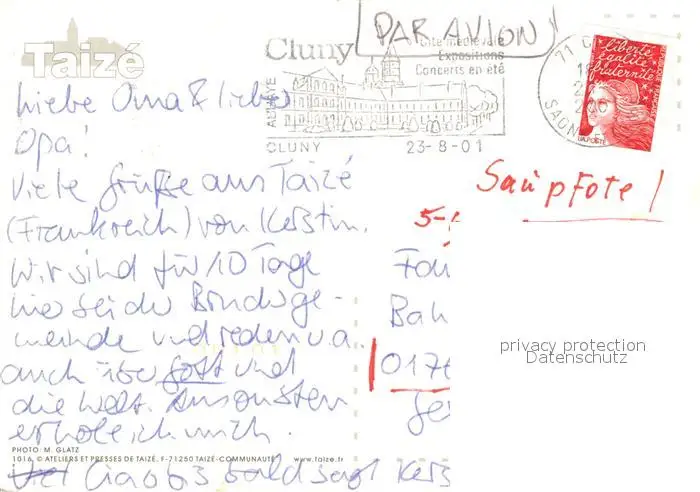 Taizé
PAR AVION
Cluny
Cité médiévale
Expositions
Concerts en été
ABBAYE
CLUNY 23-8-01
71 C
SAÔNE
liberté
égalité
fraternité
LA POSTE
Liebe Oma & lieber
Opa!
Viele Grüße aus Taizé
(Frankreich) von Kerstin.
Wir sind für 10 Tage
hier bei der Brudsge-
meinde und reden u.a.
auch über Gott und
die Welt. Ansonsten
erhole ich mich.
Ciao bis bald sagt Kers
Saüpfote!
5-
Fam
Bah
0176
Ger
privacy protection
Datenschutz
PHOTO: M. GLATZ
1016 © ATELIERS ET PRESSES DE TAIZÉ, F-71250 TAIZÉ-COMMUNAUTÉ www.taize.fr